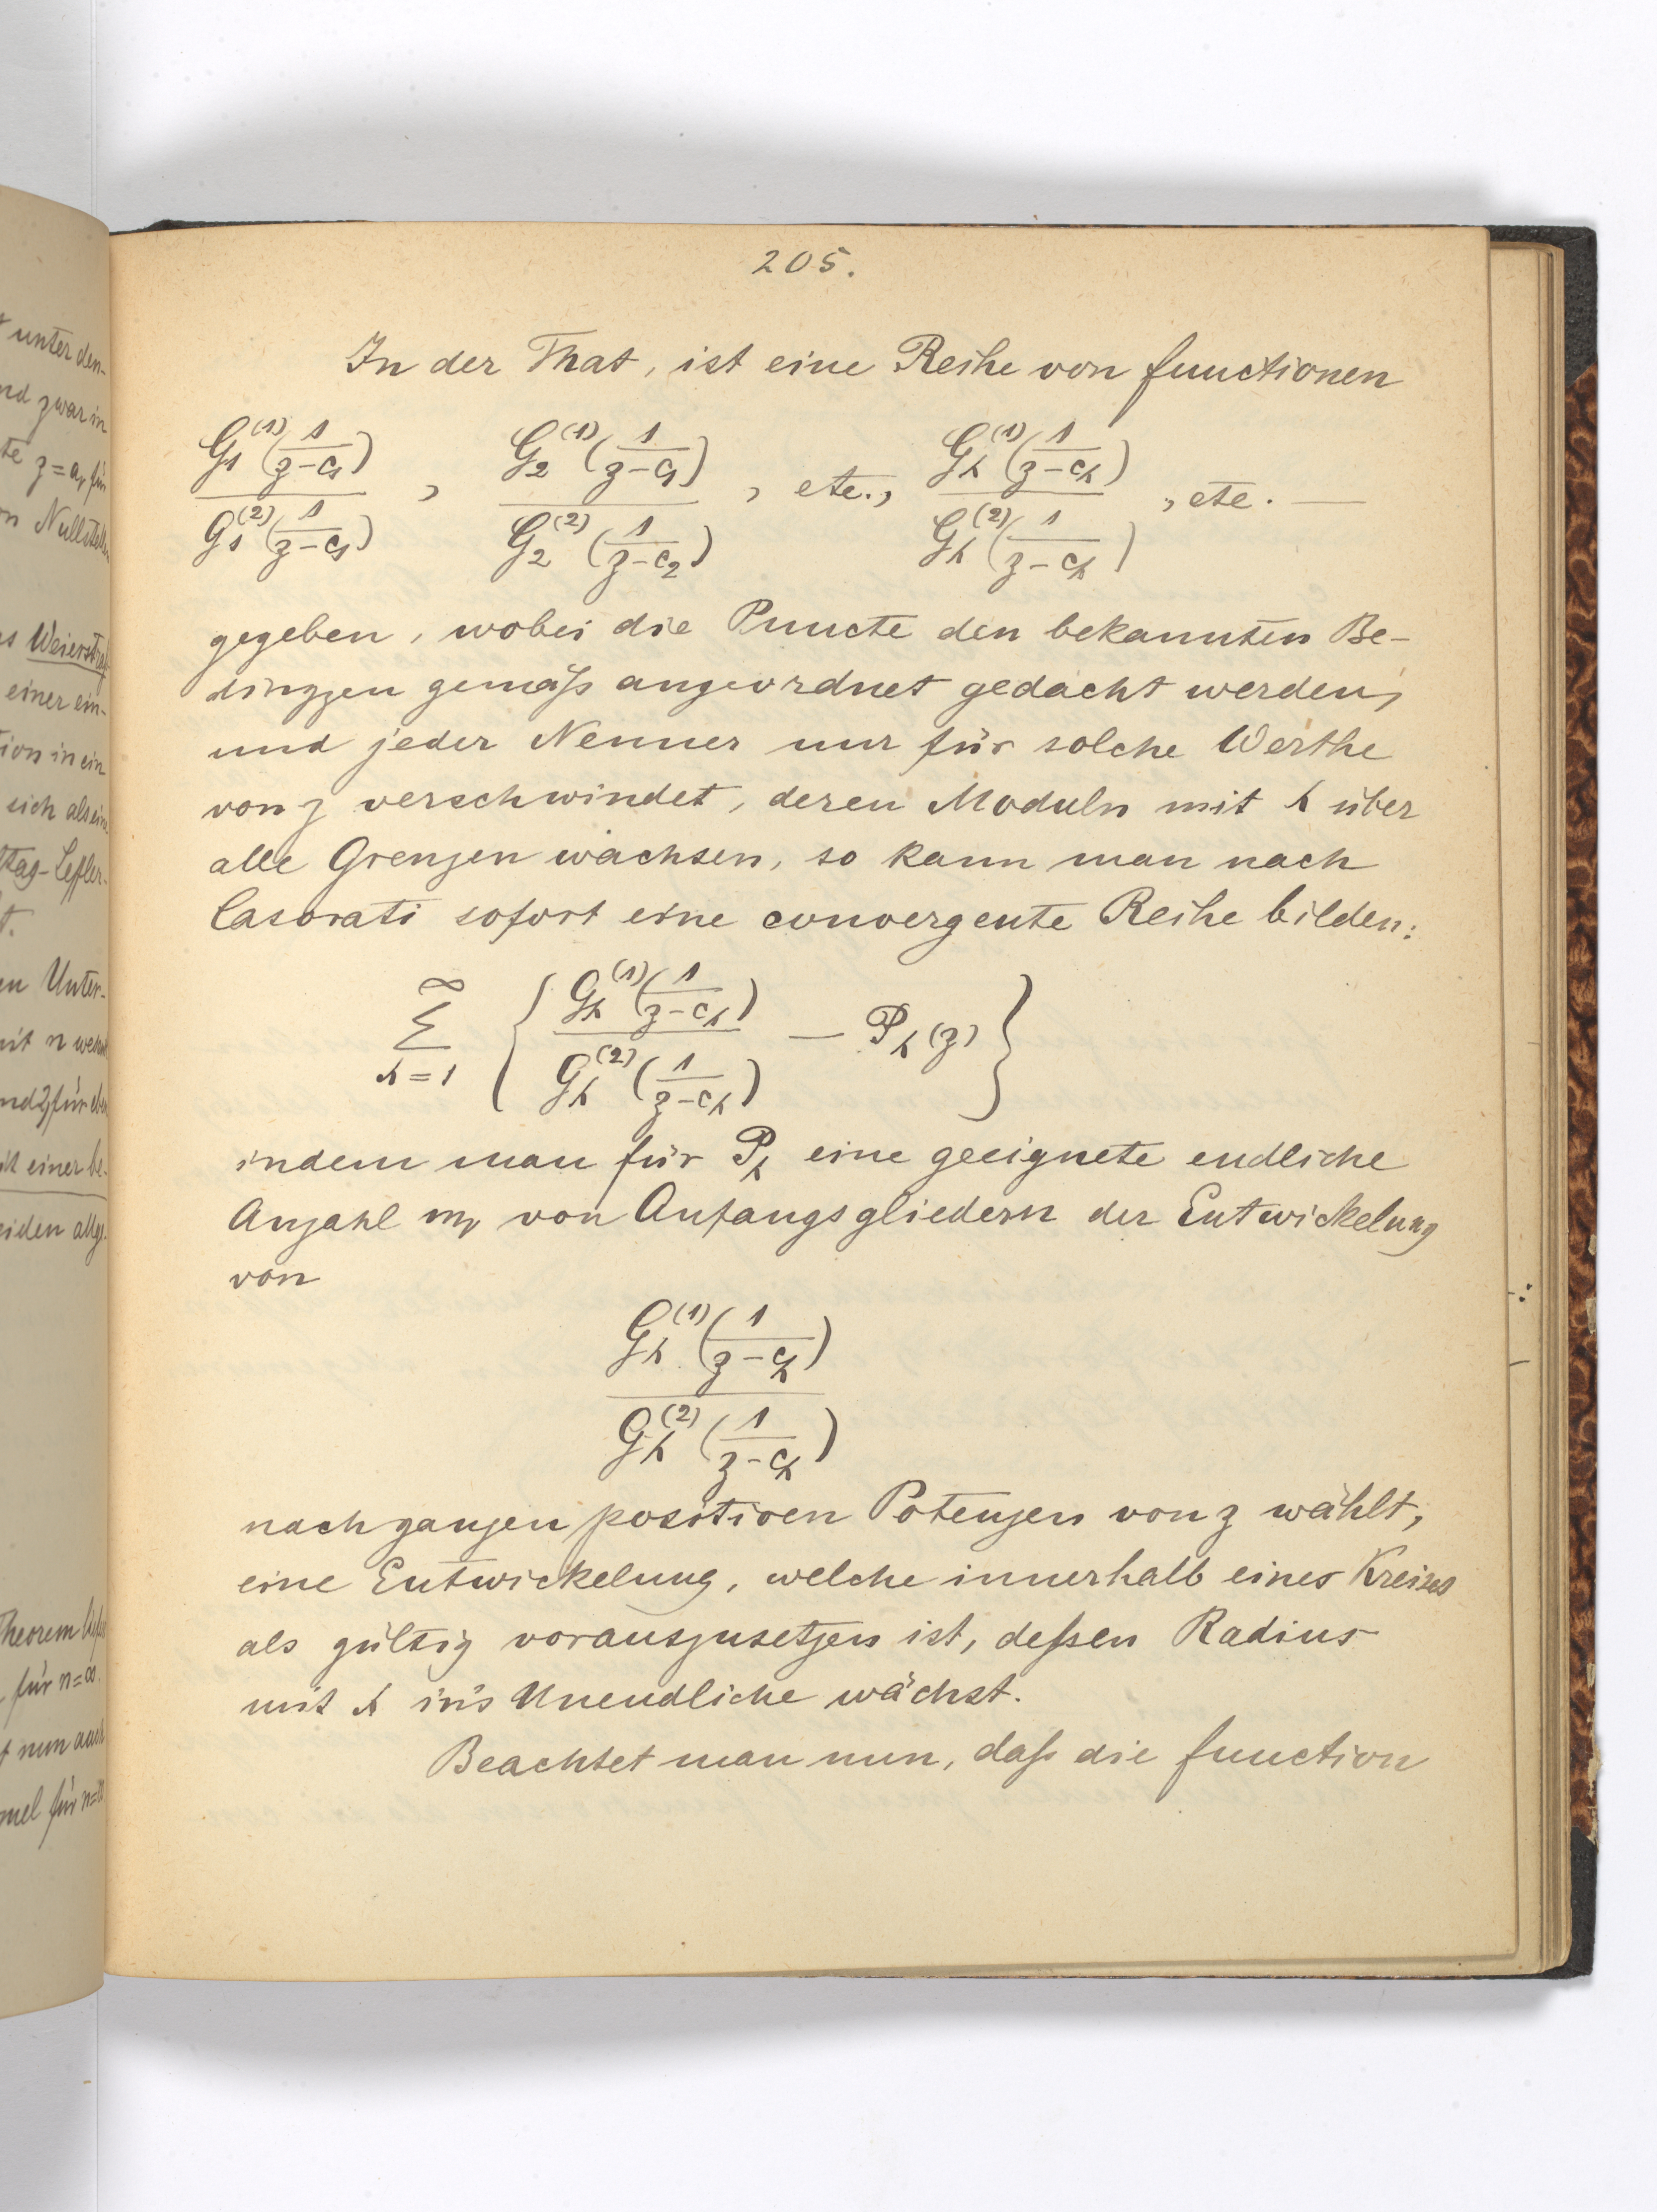 unter den-
nd zwar in
te z=a, für
n Nullstellen
s Weierstraß
einer ein-
tion in ein
sich als ein
ttag-Leffler-
t.
en Unter-
mit n wenn
ist einer be-
eiden allg.
Theorem
für n=∞.
t nun auch
mel für n=∞
205.
In der That, ist eine Reihe von functionen
G₁⁽¹⁾(1/(z-c₁)) / G₁⁽²⁾(1/(z-c₁)) , G₂⁽¹⁾(1/(z-c₁)) / G₂⁽²⁾(1/(z-c₂)) , etc., Gₕ⁽¹⁾(1/(z-cₕ)) / Gₕ⁽²⁾(1/(z-cₕ)) , etc. —
gegeben, wobei die Puncte den bekannten Be-
dinggen gemäß angeordnet gedacht werden,
und jeder Nenner nur für solche Werthe
von z verschwindet, deren Moduln mit h über
alle Grenzen wachsen, so kann man nach
Casorati sofort eine convergente Reihe bilden:
∞ Σ h=1 { Gₕ⁽¹⁾(1/(z-cₕ)) / Gₕ⁽²⁾(1/(z-cₕ)) — Pₕ(z) }
indem man für Pₕ eine geeignete endliche
Anzahl mₕ von Anfangsgliedern der Entwickelung
von
Gₕ⁽¹⁾(1/(z-cₕ)) / Gₕ⁽²⁾(1/(z-cₕ))
nach ganzen positiven Potenzen von z wählt,
eine Entwickelung, welche innerhalb eines Kreises
als gültig vorauszusetzen ist, deßen Radius
mit h in's Unendliche wächst.
Beachtet man nun, daß die function